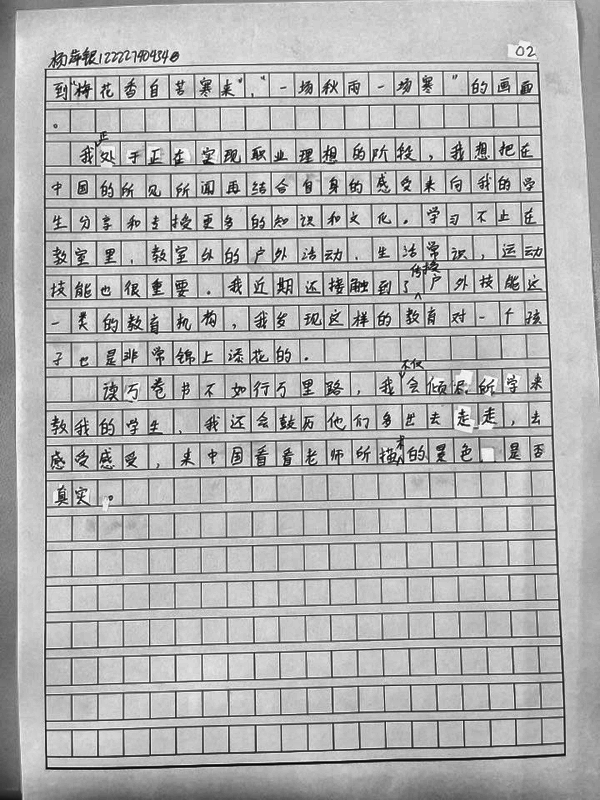 02
到“梅花香自苦寒来”，“一场秋雨一场寒”的画面
。
正
我处于正在实现职业理想的阶段，我想把在
中国的所见所闻再结合自身的感受来向我的学
生分享和支授更多的知识和文化。学习不止在
教室里，教室外的户外活动，生活常识，运动
传授
技能也很重要。我近期还接触到了户外技能这
一类的教育机构，我发现这样的教育对一个孩
子也是非常锦上添花的。
不仅
读万卷书不如行万里路，我会倾 所学来
教我的学生，我还会鼓历他们多出去走走，去
感受感受，来中国看看老师所描 的景色 是否
真实。